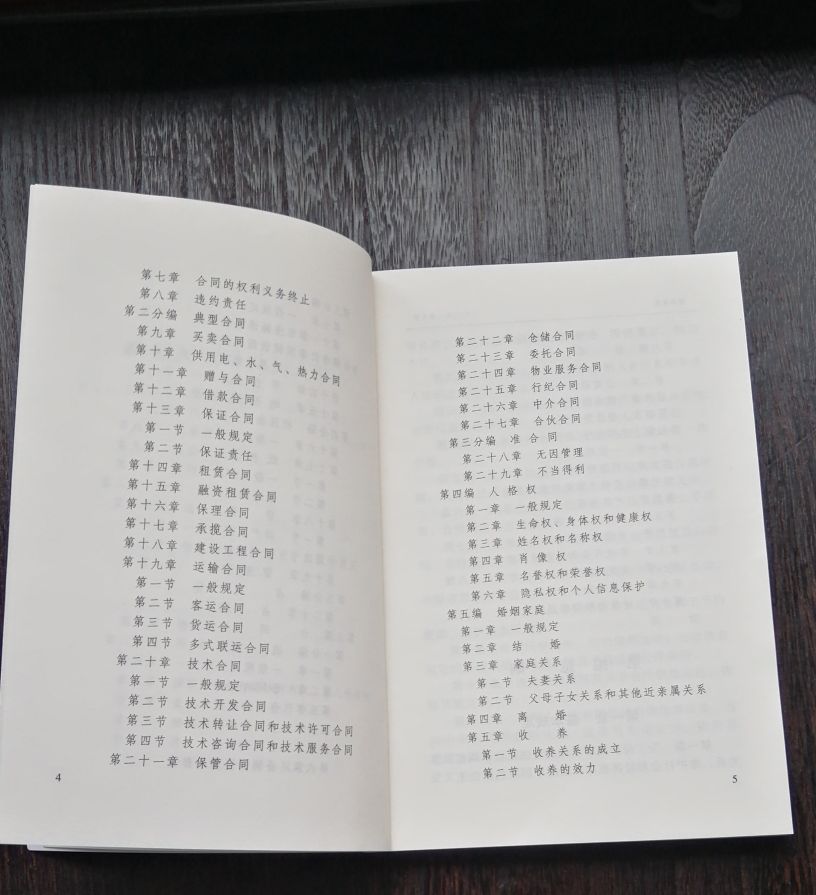 第七章 合同的权利义务终止
第八章 违约责任
第二分编 典型合同
第九章 买卖合同
第十章 供用电、水、气、热力合同
第十一章 赠与合同
第十二章 借款合同
第十三章 保证合同
第一节 一般规定
第二节 保证责任
第十四章 租赁合同
第十五章 融资租赁合同
第十六章 保理合同
第十七章 承揽合同
第十八章 建设工程合同
第十九章 运输合同
第一节 一般规定
第二节 客运合同
第三节 货运合同
第四节 多式联运合同
第二十章 技术合同
第一节 一般规定
第二节 技术开发合同
第三节 技术转让合同和技术许可合同
第四节 技术咨询合同和技术服务合同
第二十一章 保管合同
4
第二十二章 仓储合同
第二十三章 委托合同
第二十四章 物业服务合同
第二十五章 行纪合同
第二十六章 中介合同
第二十七章 合伙合同
第三分编 准合同
第二十八章 无因管理
第二十九章 不当得利
第四编 人格权
第一章 一般规定
第二章 生命权、身体权和健康权
第三章 姓名权和名称权
第四章 肖像权
第五章 名誉权和荣誉权
第六章 隐私权和个人信息保护
第五编 婚姻家庭
第一章 一般规定
第二章 结婚
第三章 家庭关系
第一节 夫妻关系
第二节 父母子女关系和其他近亲属关系
第四章 离婚
第五章 收养
第一节 收养关系的成立
第二节 收养的效力
5